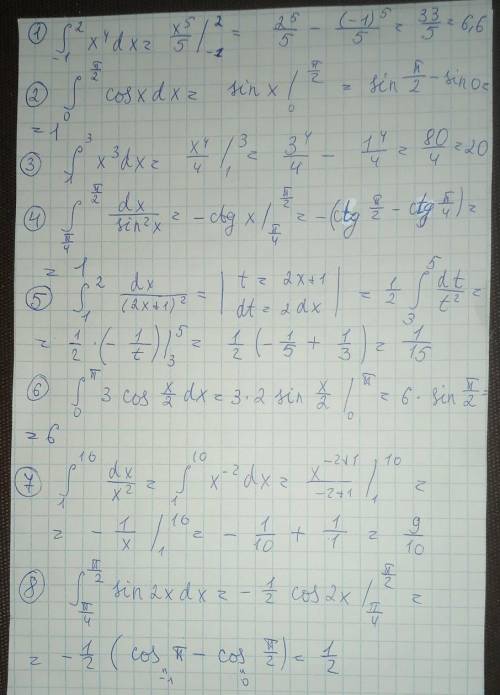 ① ∫₋₁² x⁴dx = x⁵/5 |₋₁² = 2⁵/5 − (−1)⁵/5 = 33/5 = 6,6
② ∫₀^(π/2) cosxdx = sinx |₀^(π/2) = sin π/2 − sin0 =
= 1
③ ∫₁³ x³dx = x⁴/4 |₁³ = 3⁴/4 − 1⁴/4 = 80/4 = 20
④ ∫_(π/4)^(π/2) dx/sin²x = −ctg x |_(π/4)^(π/2) = −(ctg π/2 − ctg π/4) =
= 1
⑤ ∫₁² dx/(2x+1)² = | t = 2x+1 dt = 2dx | = 1/2 ∫₃⁵ dt/t² =
= 1/2 · (−1/t) |₃⁵ = 1/2 (−1/5 + 1/3) = 1/15
⑥ ∫₀^π 3 cos x/2 dx = 3·2 sin x/2 |₀^π = 6 · sin π/2 =
= 6
⑦ ∫₁¹⁶ dx/x² = ∫₁¹⁰ x⁻²dx = x⁻²⁺¹/−2+1 |₁¹⁰ =
= −1/x |₁¹⁶ = −1/10 + 1/1 = 9/10
⑧ ∫_(π/4)^(π/2) sin2xdx = −1/2 cos2x |_(π/4)^(π/2) =
= −1/2 (cos π − cos π/2) = 1/2
" −1 " 0